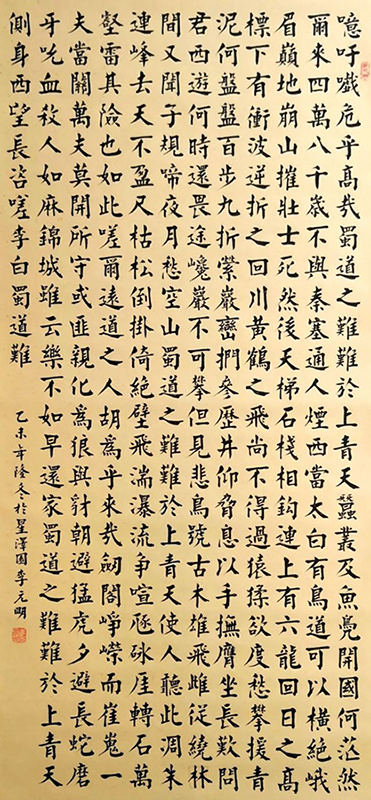 噫吁戲危乎高哉蜀道之難難於上青天蠶叢及魚鳧開國何茫然
爾來四萬八千歲不與秦塞通人煙西當太白有鳥道可以橫絕峨
眉巔地崩山摧壯士死然後天梯石棧相鈎連上有六龍回日之高
標下有衝波逆折之回川黃鶴之飛尚不得過猿猱欲度愁攀援青
泥何盤盤百步九折縈巖巒捫參歷井仰脅息以手撫膺坐長歎問
君西遊何時還畏途巉巖不可攀但見悲鳥號古木雄飛雌從繞林
間又聞子規啼夜月愁空山蜀道之難難於上青天使人聽此凋朱
連峰去天不盈尺枯松倒掛倚絕壁飛湍瀑流爭喧豗砯厓轉石萬
壑雷其險也如此嗟爾遠道之人胡為乎來哉劒閣崢嶸而崔嵬一
夫當關萬夫莫開所守或匪親化為狼與豺朝避猛虎夕避長蛇磨
牙吮血殺人如麻錦城雖云樂不如早還家蜀道之難難於上青天
側身西望長咨嗟李白蜀道難
乙未年隆冬於星澤園李元明